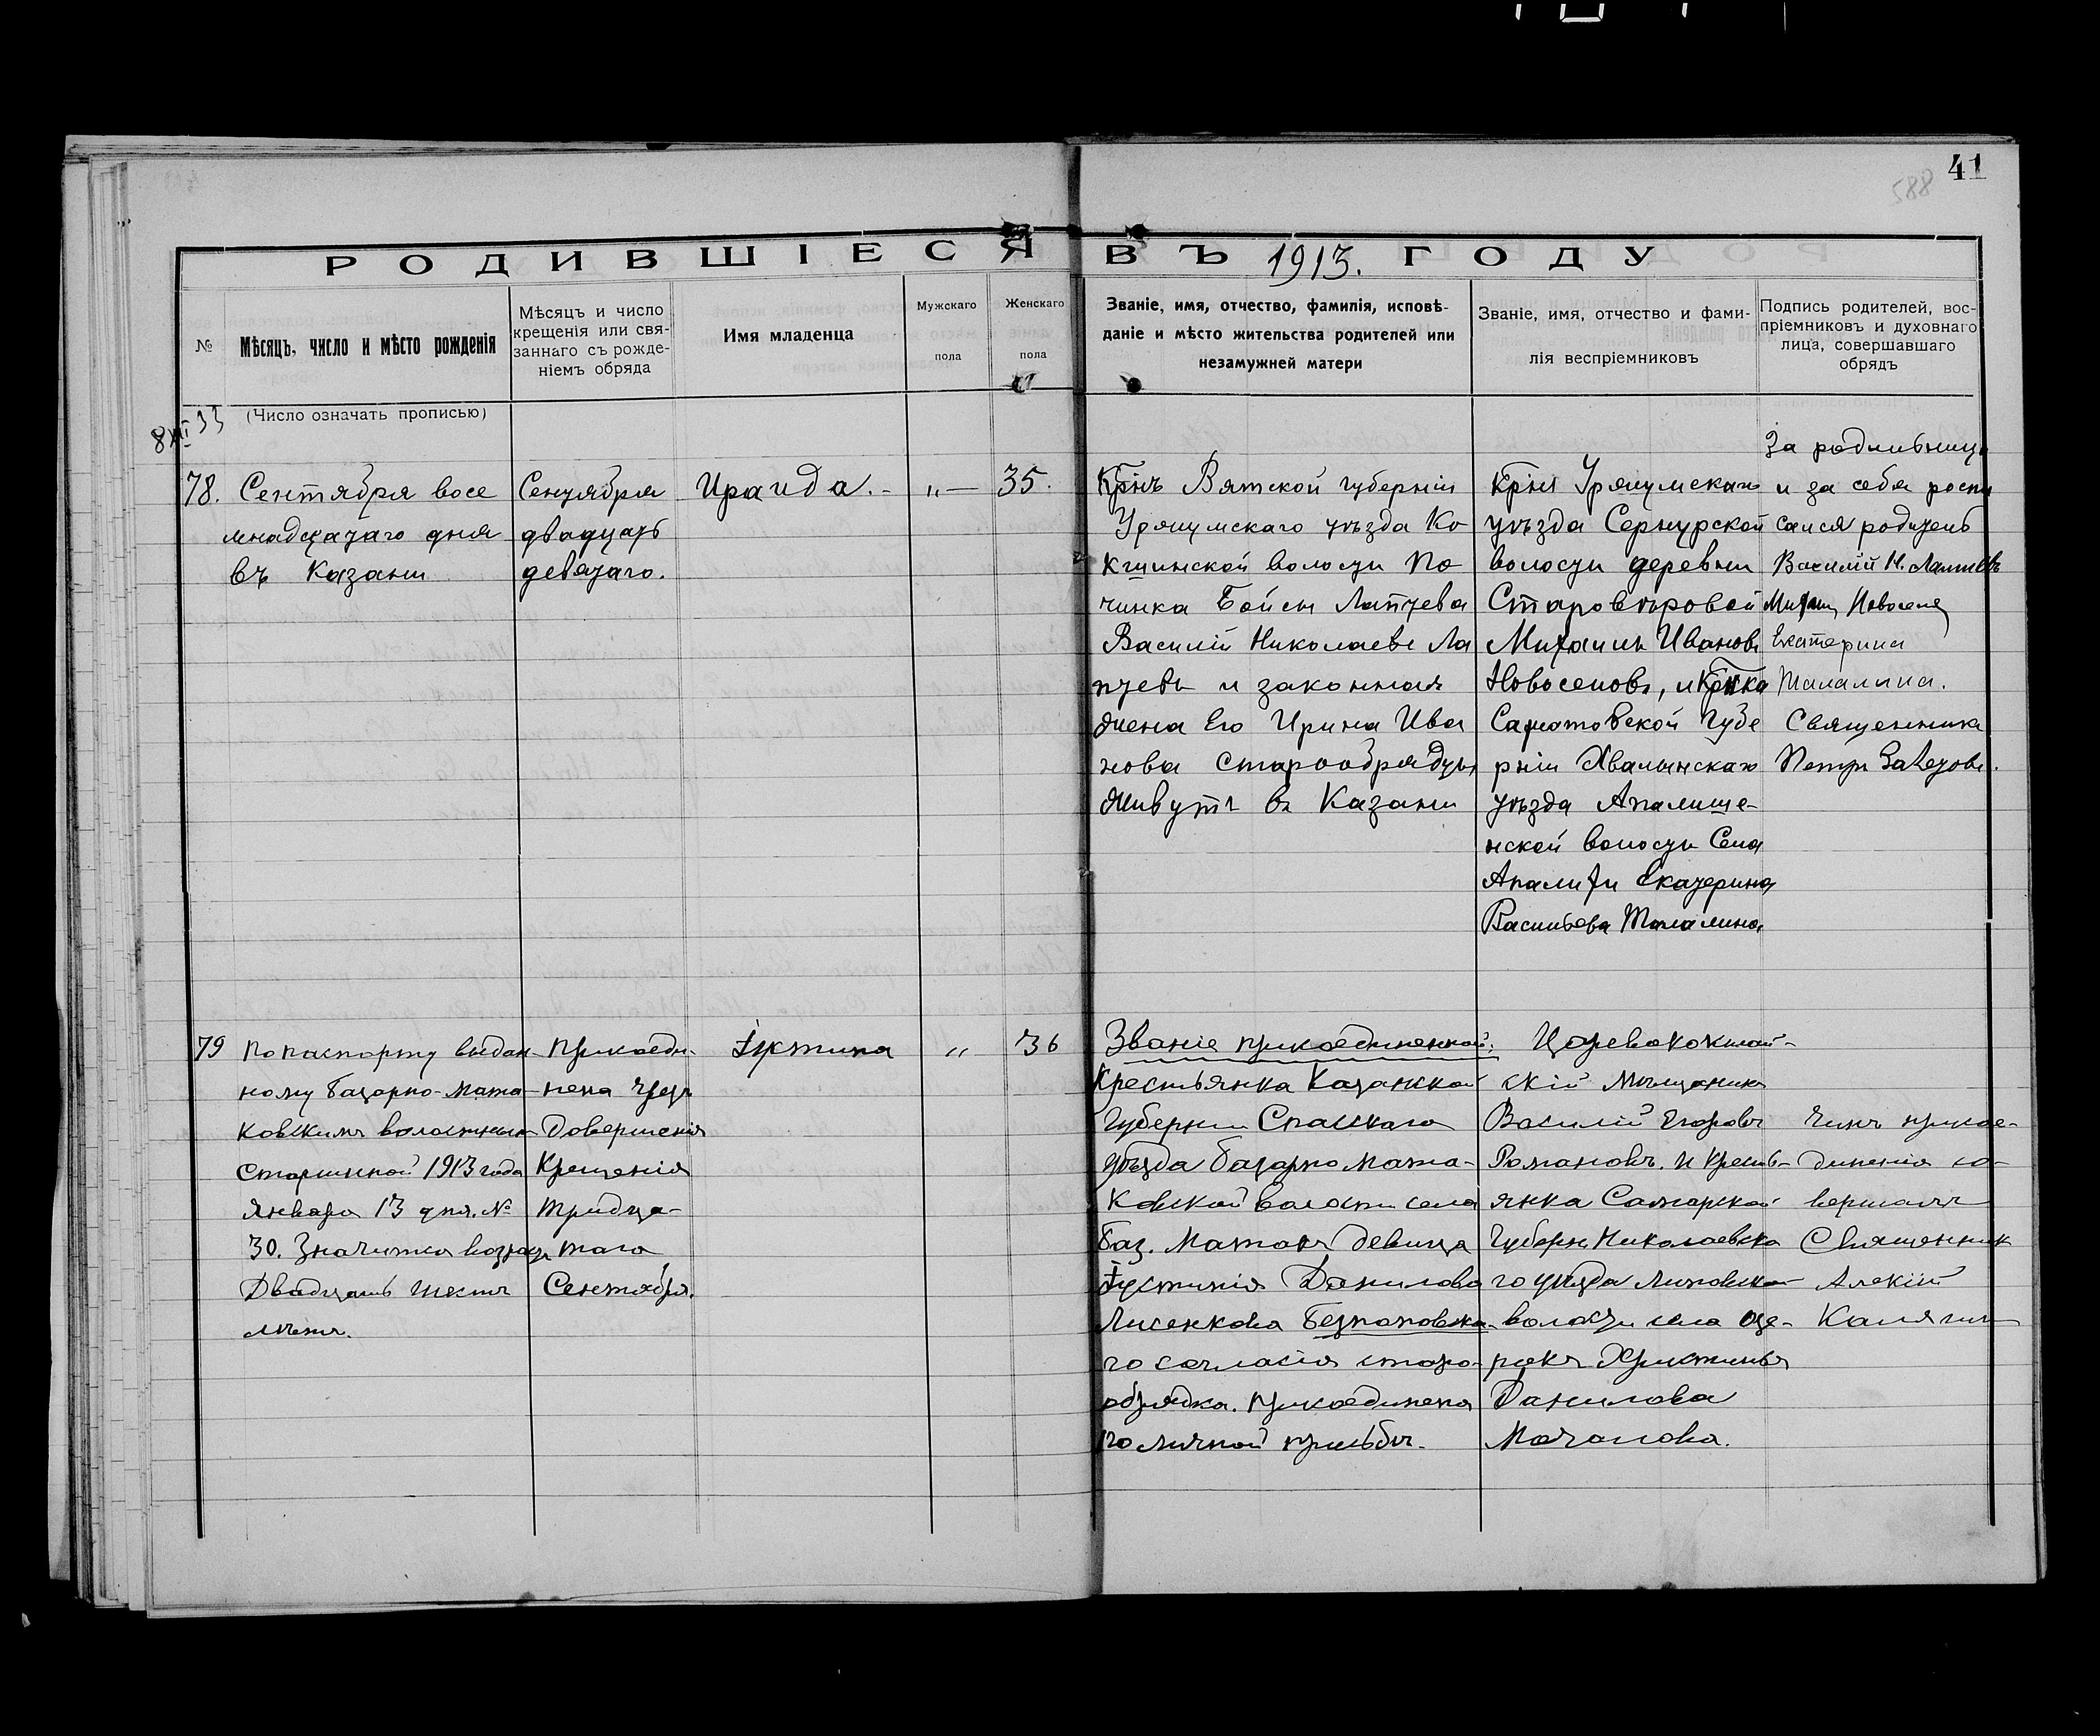 41
588
РОДИВШІЕСЯ ВЪ 1913. ГОДУ
№
Мѣсяцъ, число и мѣсто рожденія
Мѣсяцъ и число
крещенія или свя-
заннаго съ рожде-
ніемъ обряда
Имя младенца
Мужскаго
пола
Женскаго
пола
Званіе, имя, отчество, фамилія, исповѣ-
даніе и мѣсто жительства родителей или
незамужней матери
Званіе, имя, отчество и фами-
лія веспріемниковъ
Подпись родителей, вос-
пріемниковъ и духовнаго
лица, совершавшаго
обрядъ
(Число означать прописью)
78.
Сентября восе
мнадцатаго дня
въ Казани
Сентября
двадцать
девятаго.
Ираида.-
„—
35.
Крнъ Вятской губерніи
Уржумскаго уѣзда Ко
кшинской волости По
чинка Бойсы Лаптева
Василій Николаевъ Ла
птевъ и законная
жена Его Ирина Ива
нова старообрядцы
живутъ въ Казани
крнъ Уржумскаго
уѣзда Сернурской
волости деревни
Старовѣровой
Михаилъ Ивановъ
Новоселовъ, и Крнка
Саратовской Губе
рніи Хвалынскаго
уѣзда Апалише-
нской волости Села
Апалихи Екатерина
Васильева Малалина
За родильницу
и за себя роспи
сался родитель
Василій Н. Лаптевъ
Новосел
Екатерина
Малалина.
Священникъ
Петръ
79
По паспорту выдан-
ному Базарно-Мата-
ковскимъ волостнымъ
Старшиной 1913 года
Января 13 дня. №
30. Значится возраст
Двадцать шесть
лѣтъ.
Присоеди-
нена чрезъ
Довершенія
Крещенія
Тридца-
таго
Сентября.
Іустина
„
36
Званіе присоединенной:
Крестьянка Казанской
Губерніи Спасскаго
уѣзда Базарно Мата-
ковской волости села
Баз. Матакъ девица
Іустинія Данилова
Лисенкова Безпоповска-
го согласія старо-
обрядка. Присоединена
по личной просьбѣ.
Царевококшай-
скій мѣщанинъ
Василій Егоровъ
Романовъ. И Кресть-
янка Самарской
Губерн. Николаевска
го уѣзда Липовской
волости села Озе-
рокъ Христинья
Данилова
Мочалова.
Чинъ присое-
диненія со-
вершалъ
Священникъ
Алексій
Калягинъ